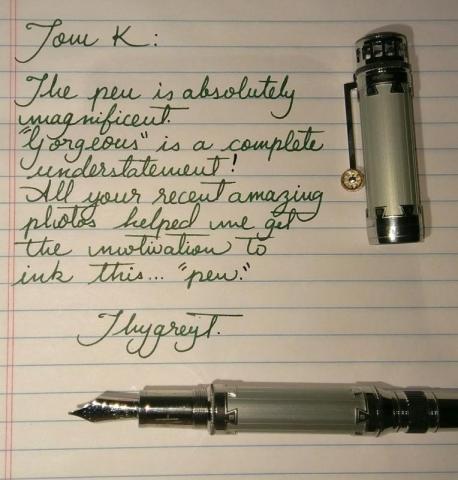 Tom K:
The pen is absolutely
magnificent.
"Gorgeous" is a complete
understatement!
All your recent amazing
photos helped me get
the motivation to
ink this... "pen."